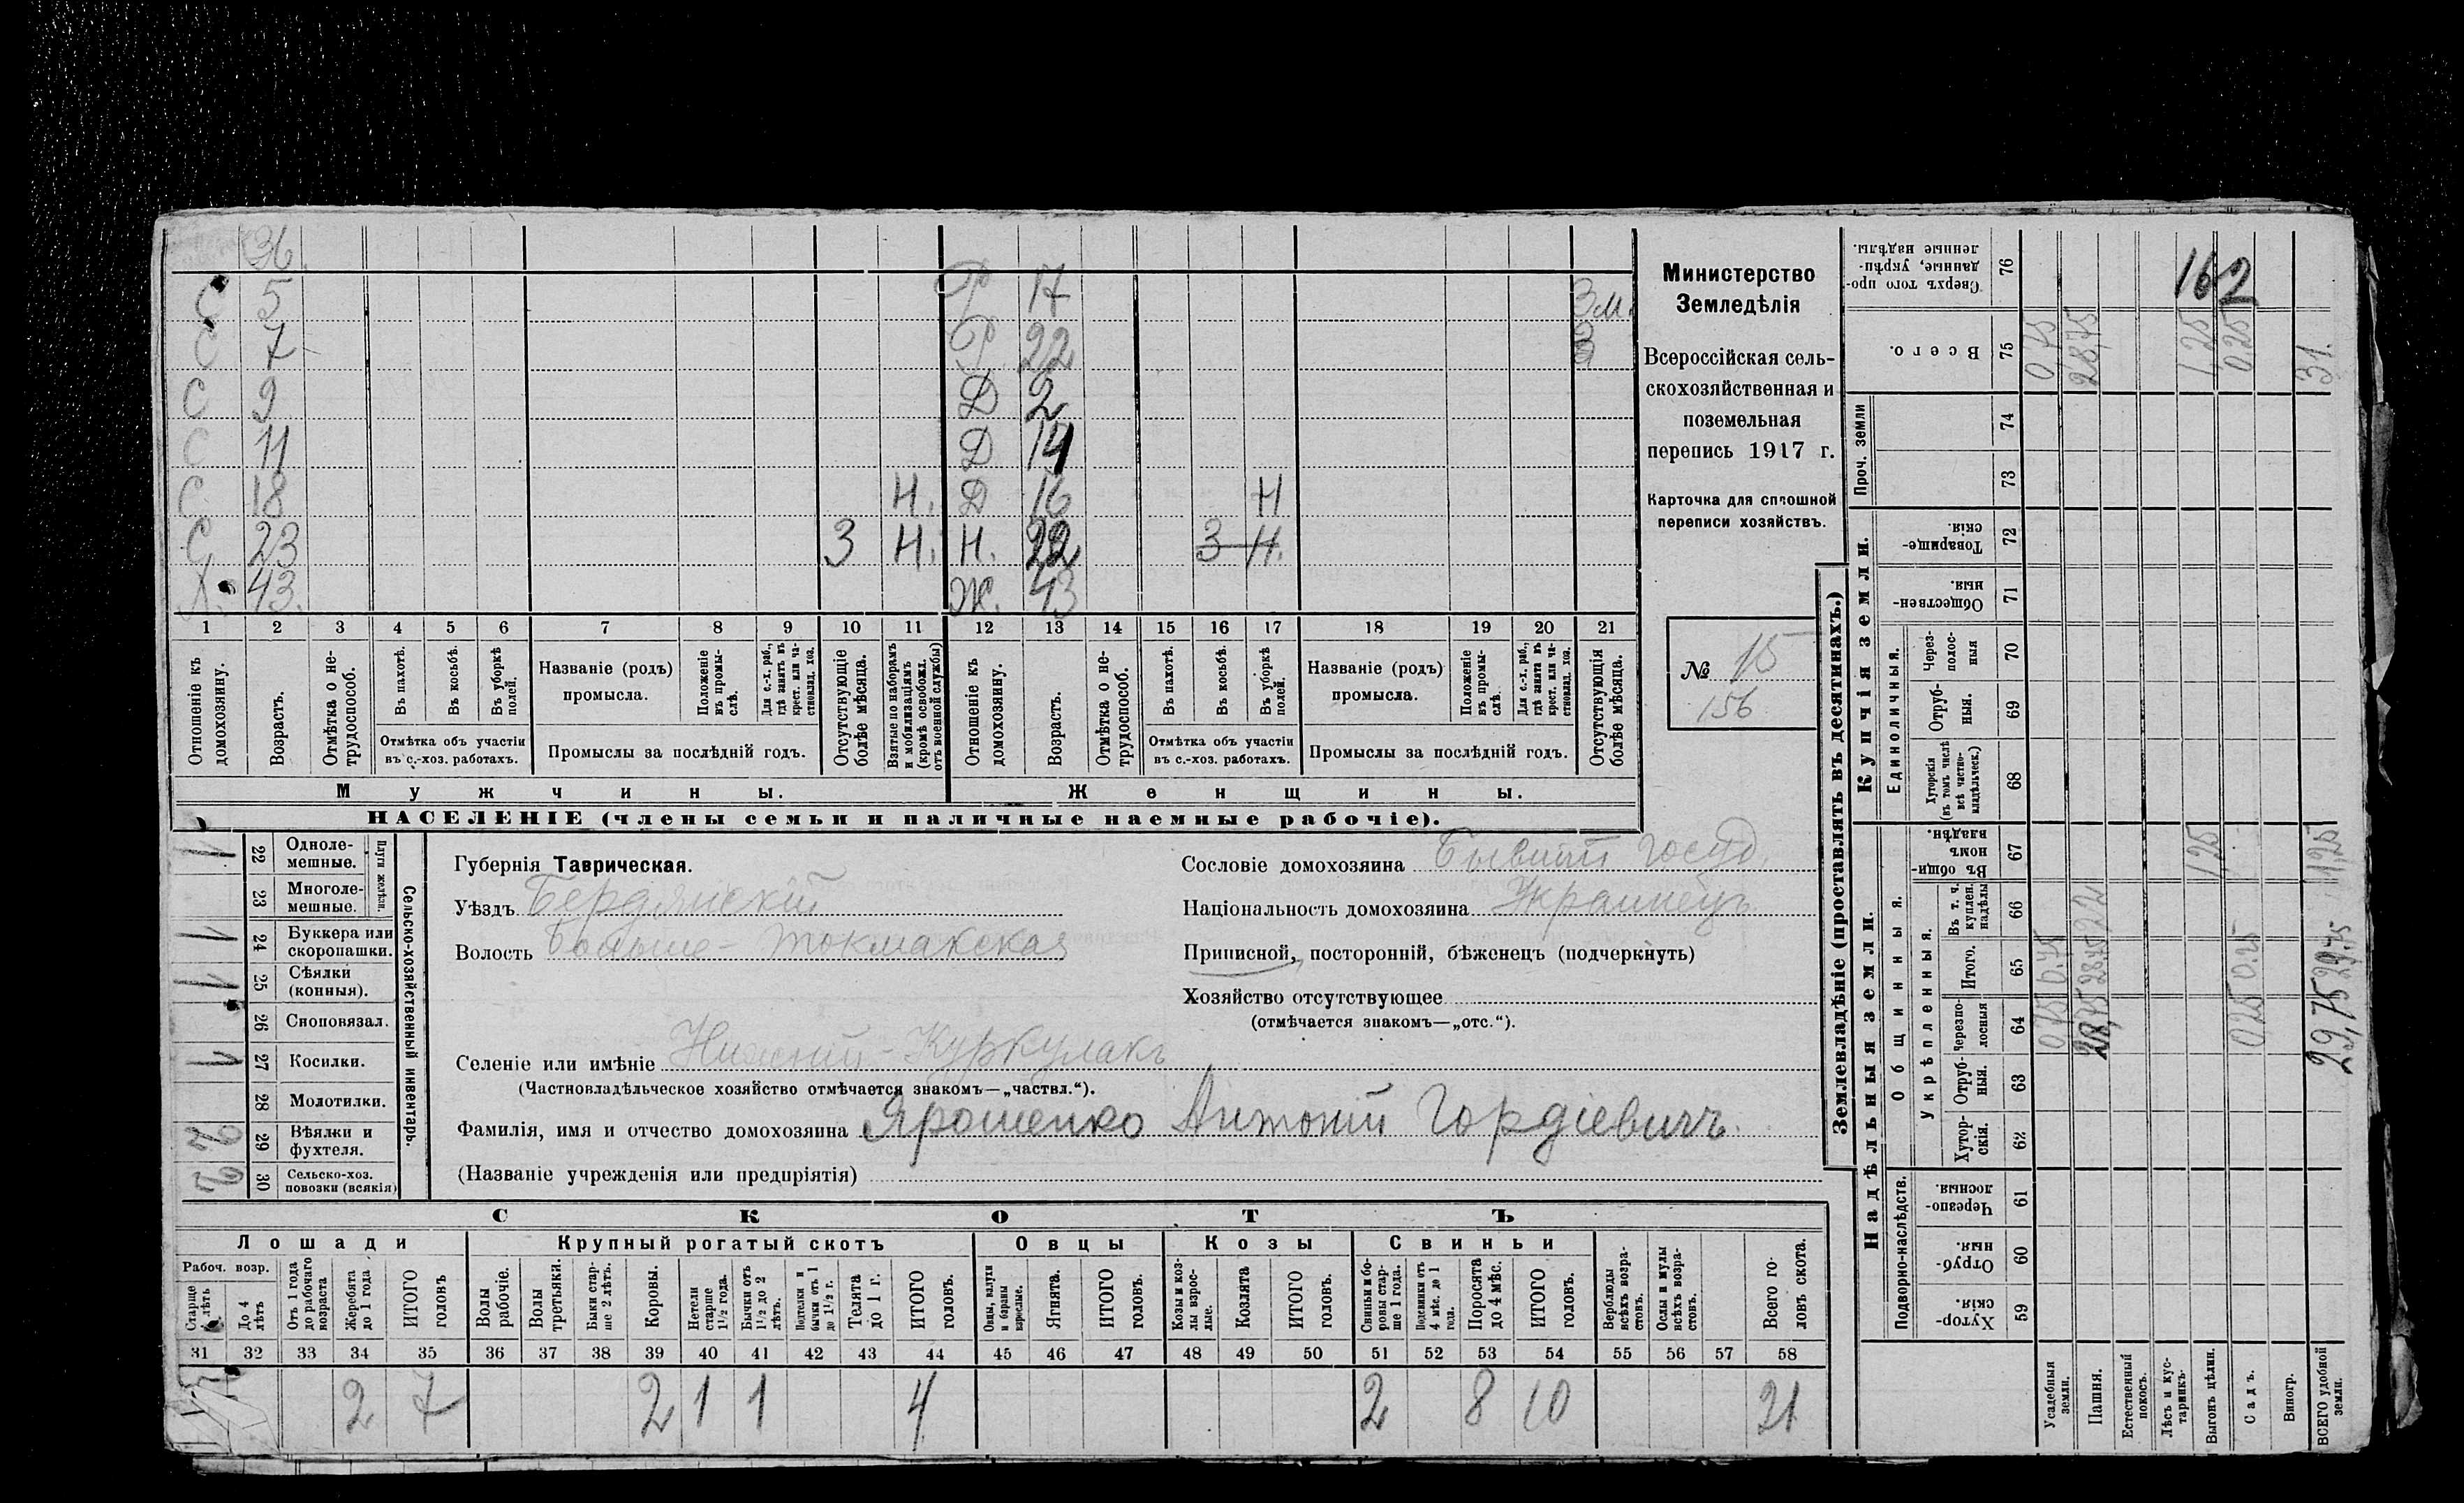 36.
С 5 Р 17 3 м.
С 7 Р. 22 3
С 9 Д 2
С 11 Д 14
С 18 Н. Д 16 Н
С 23 3 Н. Н. 22 3 Н.
Х. 43. Ж. 43
1 2 3 4 5 6 7 8 9 10 11 12 13 14 15 16 17 18 19 20 21
Отношеніе къ домохозяину.
Возрастъ.
Отмѣтка о нетрудоспособ.
Въ пахотѣ.
Въ косьбѣ.
Въ уборкѣ полей.
Отмѣтка объ участіи
въ с.-хоз. работахъ.
Названіе (родъ)
промысла.
Положеніе въ промыслѣ.
Для с.-х. раб., гдѣ занятъ въ крест. или частновлад. хоз.
Промыслы за послѣдній годъ.
Отсутствующіе болѣе мѣсяца.
Взятые по наборамъ и мобилизаціямъ (кромѣ освобожд. отъ военной службы)
Отношеніе къ домохозяину.
Возрастъ.
Отмѣтка о нетрудоспособ.
Въ пахотѣ.
Въ косьбѣ.
Въ уборкѣ полей.
Отмѣтка объ участіи
въ с.-хоз. работахъ.
Названіе (родъ)
промысла.
Положеніе въ промыслѣ.
Для с.-х. раб., гдѣ занятъ въ крест. или частновлад. хоз.
Промыслы за послѣдній годъ.
Отсутствующія болѣе мѣсяца.
Мужчины. Женщины.
НАСЕЛЕНІЕ (члены семьи и наличные наемные рабочіе).
Министерство
Земледѣлія
Всероссійская сель-
скохозяйственная и
поземельная
перепись 1917 г.
Карточка для сплошной
переписи хозяйствъ.
№ 15
156
22 Одноле-
мешные.
23 Многоле-
мешные.
Плуги желѣзн.
24 Буккера или
скоропашки.
25 Сѣялки
(конныя).
26 Сноповязал.
27 Косилки.
28 Молотилки.
29 Вѣялки и
фухтеля.
30 Сельско-хоз.
повозки (всякія)
1
1
1
1
2
2
Сельско-хозяйственный инвентарь.
Губернія Таврическая.
Уѣздъ Бердянскій
Волость Больше-Токмакская
Селеніе или имѣніе Нижній-Куркулакъ
(Частновладѣльческое хозяйство отмѣчается знакомъ—„частвл.“).
Фамилія, имя и отчество домохозяина Ярошенко Антоній Гордіевичъ.
(Названіе учрежденія или предпріятія)
Сословіе домохозяина Бывшій госуд.
Національность домохозяина Украинецъ
Приписной, посторонній, бѣженецъ (подчеркнуть)
Хозяйство отсутствующее
(отмѣчается знакомъ—„отс.“).
СКОТЪ
Лошади Крупный рогатый скотъ Овцы Козы Свиньи
Рабоч. возр.
Старше 4 лѣтъ
До 4 лѣтъ
Отъ 1 года до рабочаго возраста
Жеребята до 1 года
ИТОГО головъ
Волы рабочіе.
Волы третьяки.
Быки старше 2 лѣтъ.
Коровы.
Нетели старше 1½ года.
Бычки отъ 1½ до 2 лѣтъ.
Подтелки и бычки отъ 1 до 1½ г.
Телята до 1 г.
ИТОГО головъ.
Овцы, валухи и бараны взрослые.
Ягнята.
ИТОГО головъ.
Козы и козлы взрослые.
Козлята
ИТОГО головъ.
Свиньи и боровы старше 1 года.
Подсвинки отъ 4 мѣс. до 1 года.
Поросята до 4 мѣс.
ИТОГО головъ.
Верблюды всѣхъ возрастовъ.
Ослы и мулы всѣхъ возрастовъ.
Всего головъ скота.
31 32 33 34 35 36 37 38 39 40 41 42 43 44 45 46 47 48 49 50 51 52 53 54 55 56 57 58
5 2 7 2 1 1 4 2 8 10 21
Землевладѣніе (проставлять въ десятинахъ.)
Надѣльныя земли. Купчія земли. Проч. земли
Подворно-наслѣдств. Общинныя.
Укрѣпленныя. Единоличныя.
Хуторскія. 59
Отрубныя. 60
Черезполосныя. 61
Хуторскія. 62
Отрубныя. 63
Черезполосныя 64
Итого. 65
Въ т. ч. куплен. надѣлы 66
Въ общиномъ владѣн. 67
Хуторскія (въ томъ числѣ всѣ частновладѣльческ.) 68
Отрубныя. 69
Черезполосныя 70
Общественныя. 71
Товарищескія. 72
73
74
Всего. 75
Сверхъ того проданные, укрѣпленные надѣлы. 76
Усадебныя земли. 0.75 0.75 0.75
Пашня. 28,75 28,75 22 28,75
Естественный покосъ.
Лѣсъ и кустарникъ.
Выгонъ цѣлин. 1,25 1,25
Садъ. 0.25 0.25 0.25
Виногр.
ВСЕГО удобной земли. 29,75 29,75 1,25 31.
162